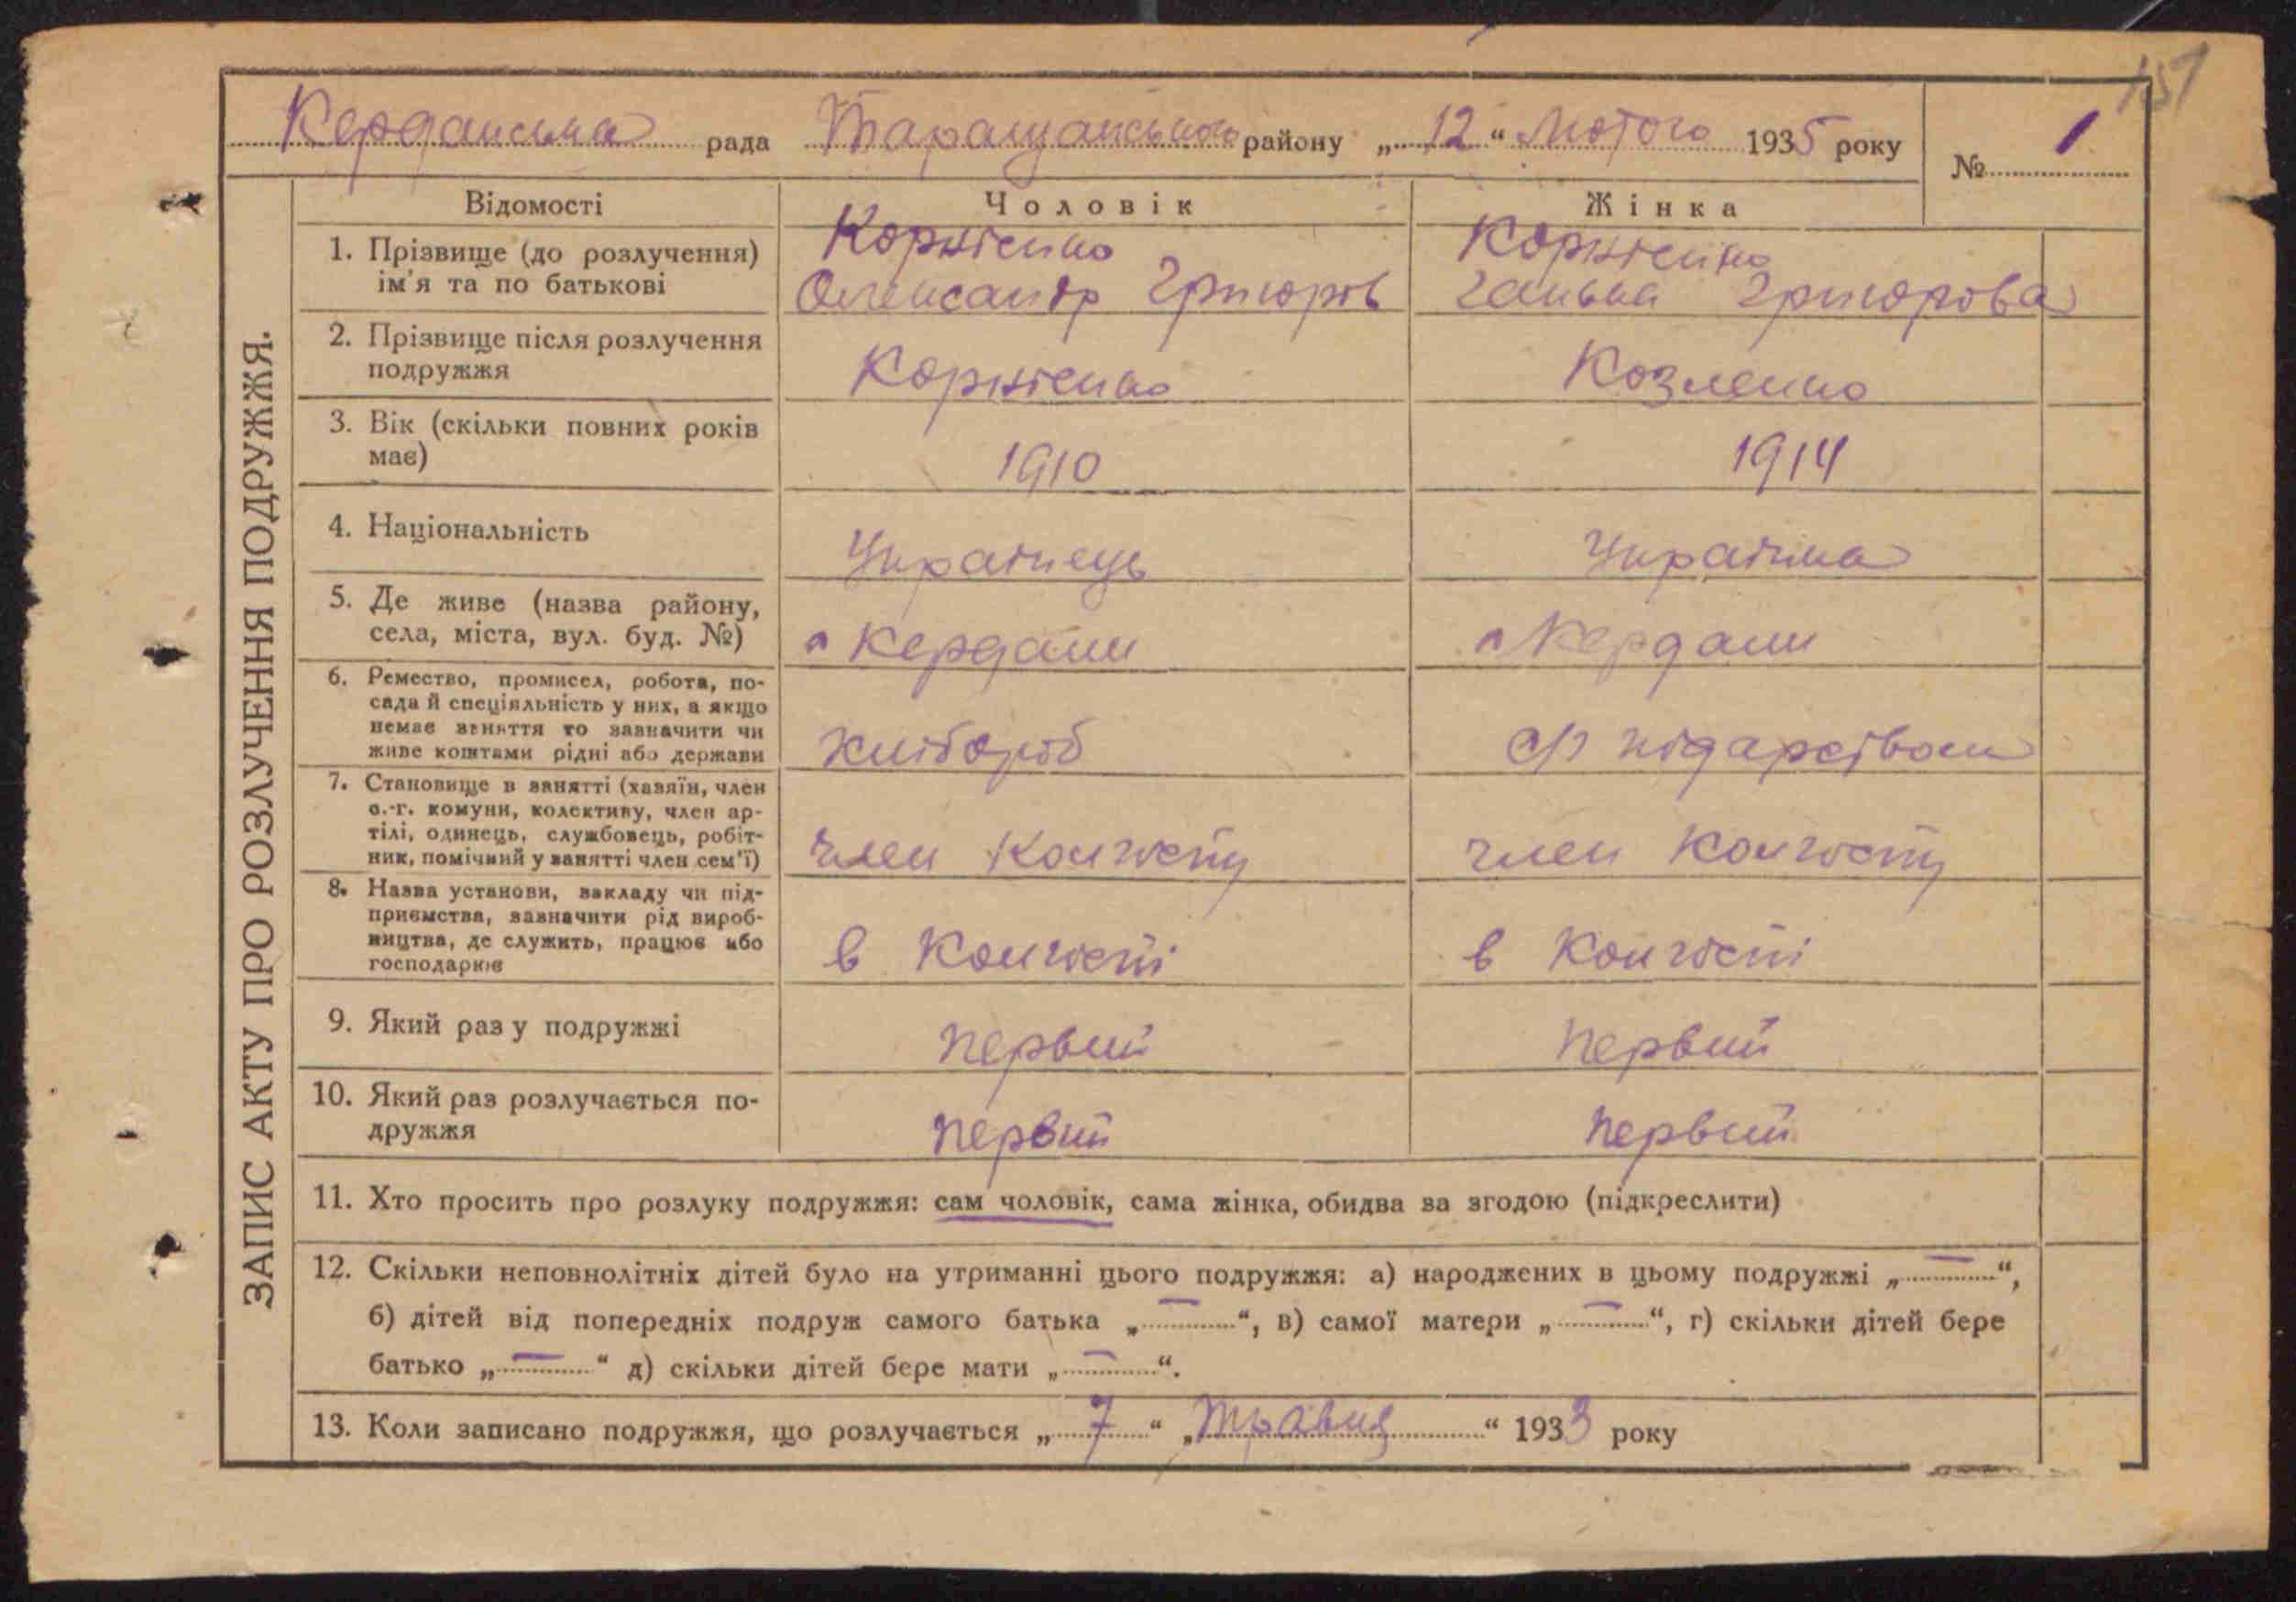 151
Керданська рада Таращанського району „12“ Лютого 1935 року
№ 1
ЗАПИС АКТУ ПРО РОЗЛУЧЕННЯ ПОДРУЖЖЯ.
Відомості Чоловік Жінка
1. Прізвище (до розлучення) Корнієнко Корнієнко
ім'я та по батькові Олександр Григоров Ганна Григорова
2. Прізвище після розлучення
подружжя Корнієнко Козленко
3. Вік (скільки повних років
має) 1910 1914
4. Національність Українець Українка
5. Де живе (назва району,
села, міста, вул. буд. №) с Кердани с Кердани
6. Ремество, промисел, робота, по-
сада й спеціяльність у них, а якщо
немає заняття то зазначити чи
живе коштами рідні або держави хлібороб
7. Становище в занятті (хазяїн, член
с.-г. комуни, колективу, член ар-
тілі, одинець, службовець, робіт-
ник, помічний у занятті член сем'ї) член Колгоспу член Колгоспу
8. Назва установи, закладу чи під-
приємства, зазначити рід вироб-
ництва, де служить, працює або
господарює в Колгоспі в Колгоспі
9. Який раз у подружжі первий первий
10. Який раз розлучається по-
дружжя первий первий
11. Хто просить про розлуку подружжя: сам чоловік, сама жінка, обидва за згодою (підкреслити)
12. Скільки неповнолітніх дітей було на утриманні цього подружжя: а) народжених в цьому подружжі „—“,
б) дітей від попередніх подруж самого батька „—“, в) самої матери „—“, г) скільки дітей бере
батько „—“ д) скільки дітей бере мати „—“.
13. Коли записано подружжя, що розлучається „7“ „Травня“ 1933 року